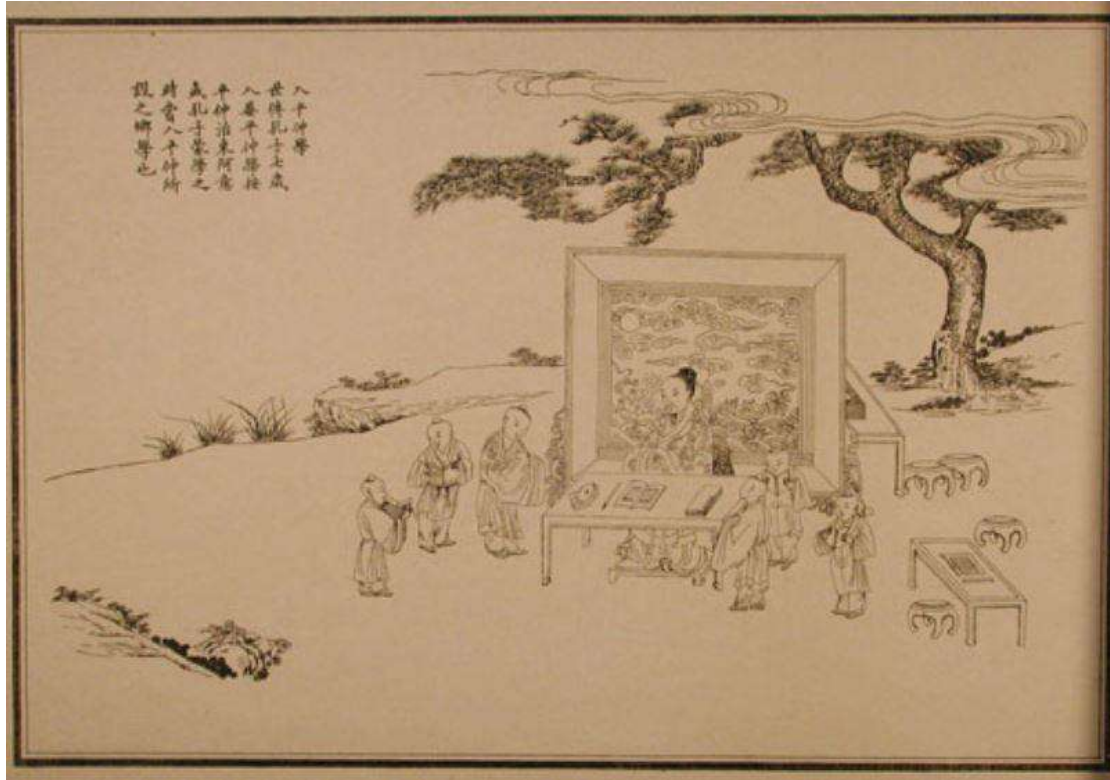 入平仲學
世傳孔子七歲
入晏平仲學按
平仲治東阿意
或孔子蒙學之
時嘗入平仲所
設之鄉學也